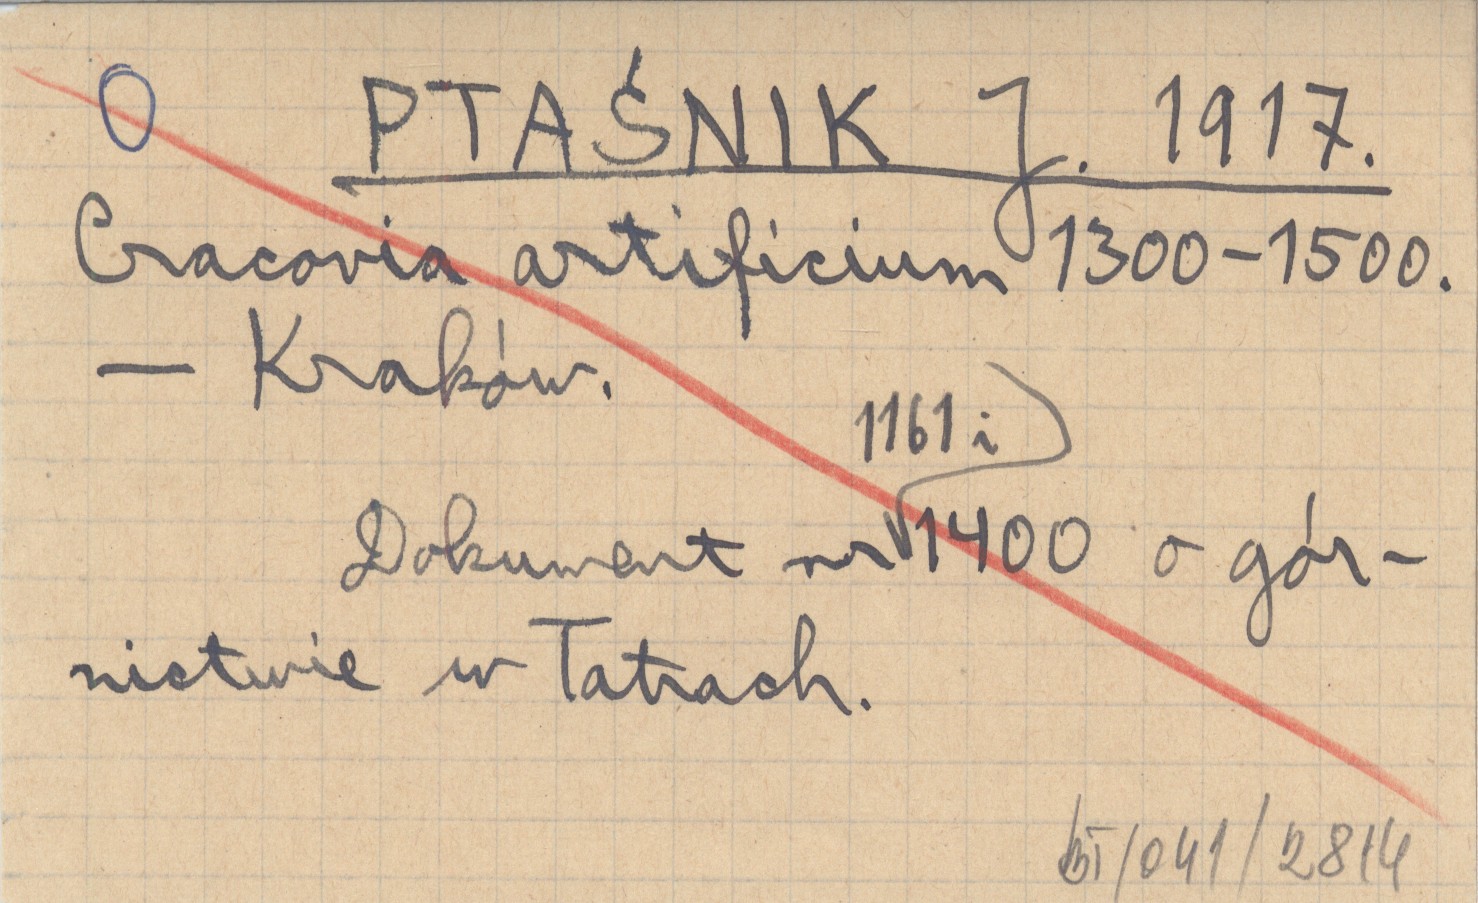 O PTAŚNIK J. 1917.
Cracovia artificium 1300-1500.
— Kraków.
1161 i
Dokument nr 1400 o gór-
nictwie w Tatrach.
/041/2814